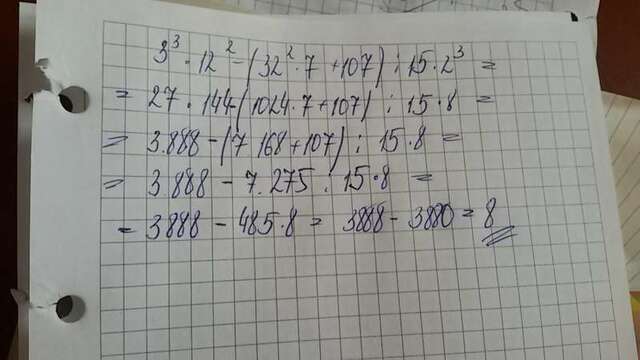 3³ · 12² - (32² · 7 + 107) : 15 · 2³ =
= 27 · 144 - (1024 · 7 + 107) : 15 · 8 =
= 3.888 - (7 168 + 107) : 15 · 8 =
= 3.888 - 7.275 : 15 · 8 =
= 3888 - 485 · 8 = 3888 - 3880 = 8